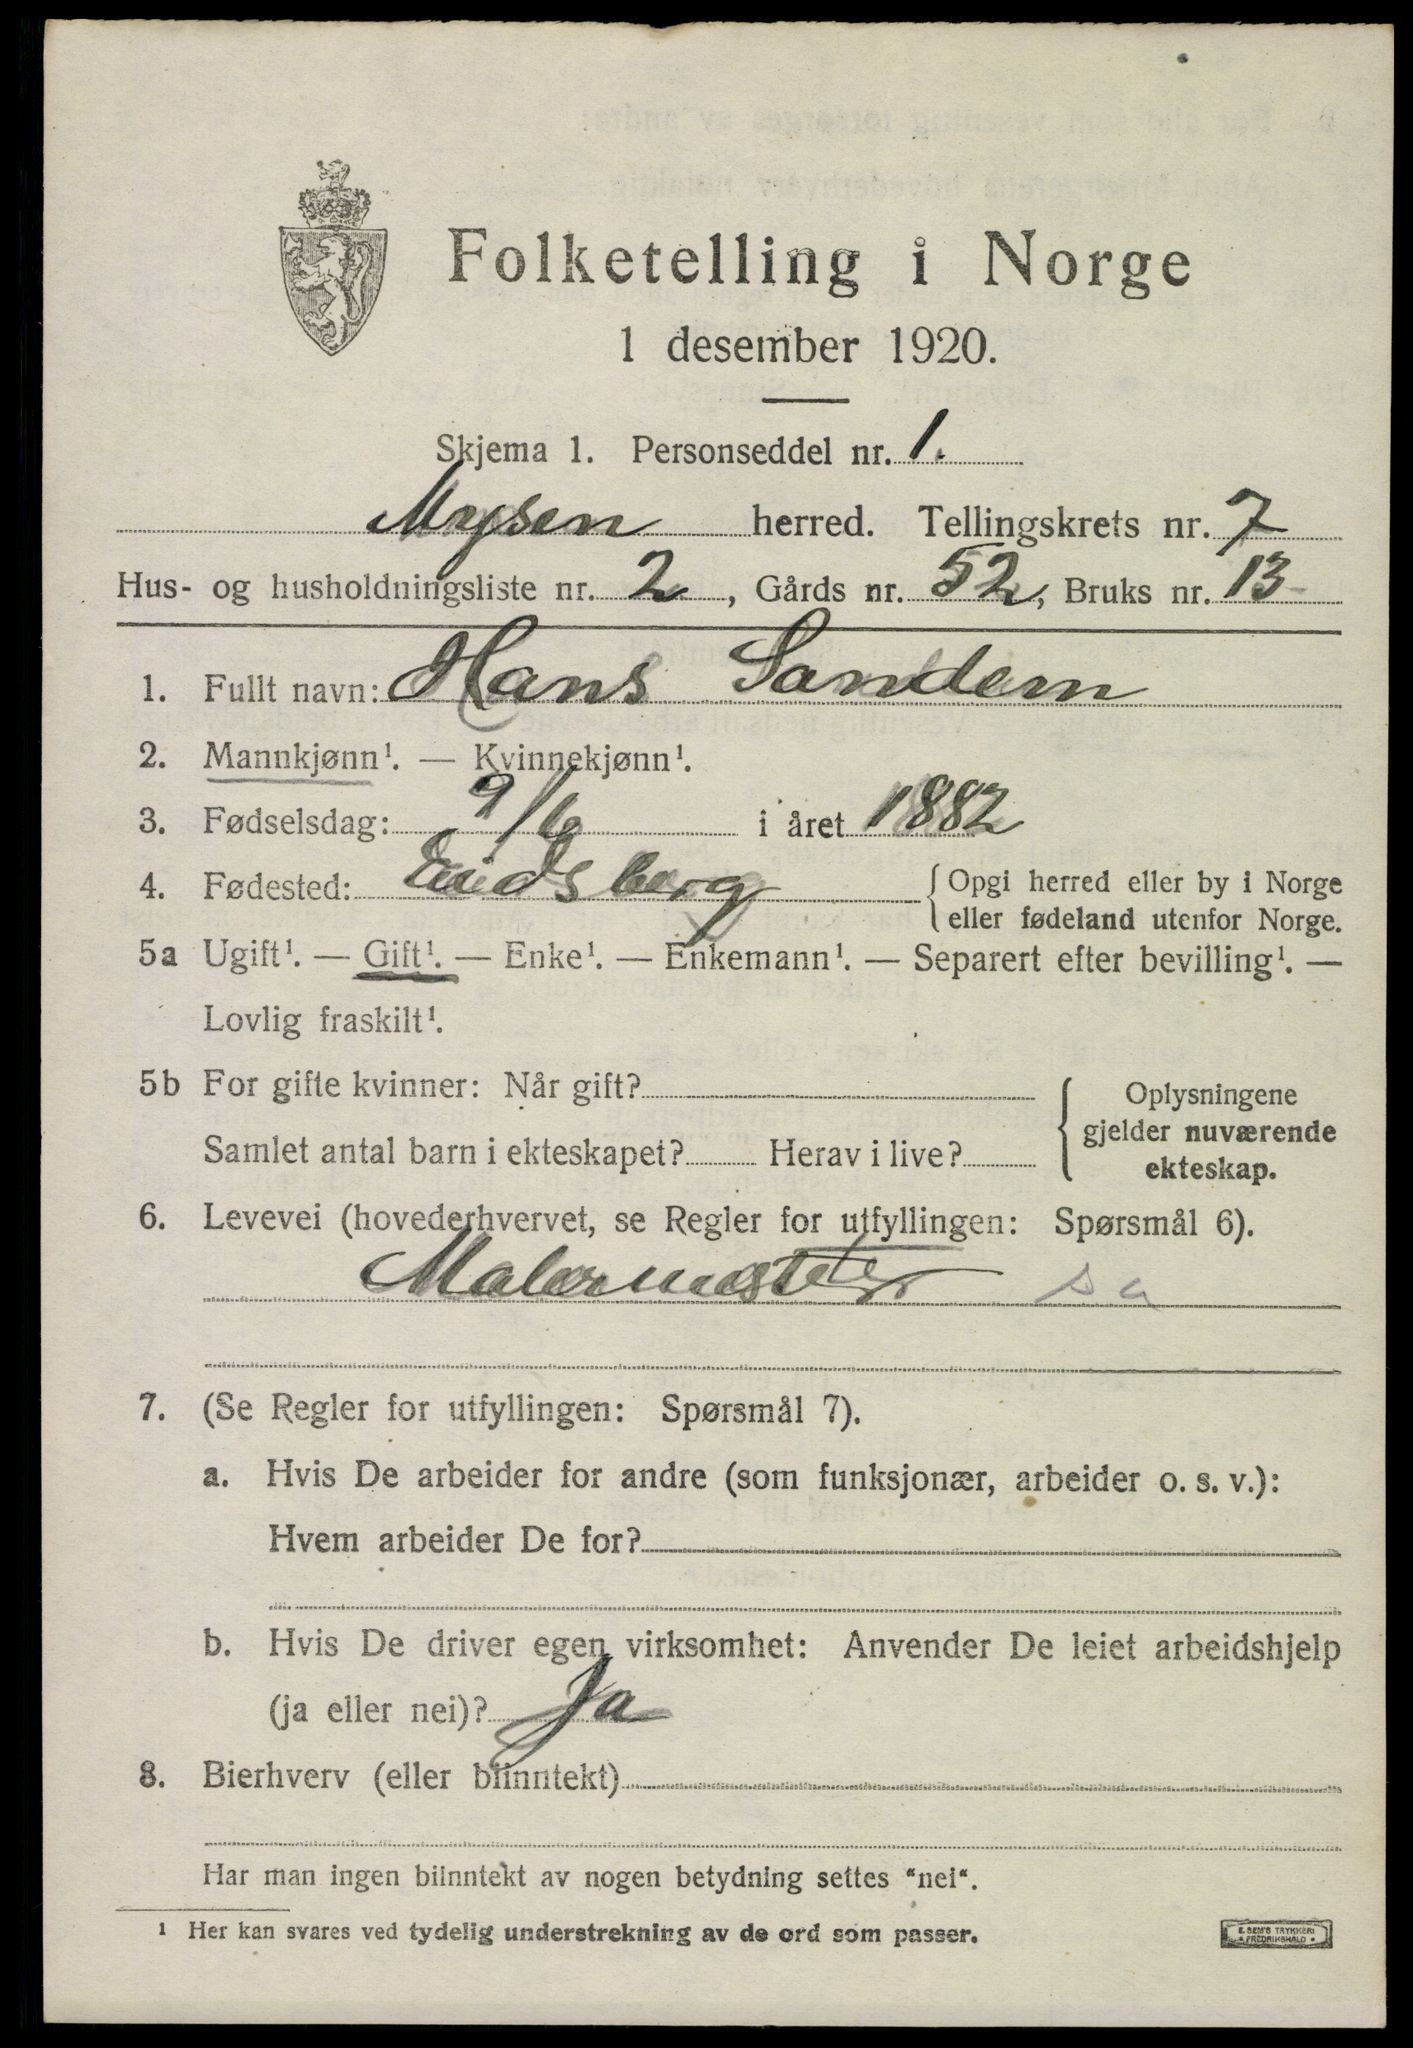 Folketelling i Norge
1 desember 1920.
Skjema 1. Personseddel nr. 1.
Mysen herred. Tellingskrets nr. 7
Hus- og husholdningsliste nr. 2, Gårds nr. 52, Bruks nr. 13
1. Fullt navn: Hans Sandem
2. Mannkjønn¹. — Kvinnekjønn¹.
3. Fødselsdag: 9/6 i året 1882
4. Fødested: Eidsberg { Opgi herred eller by i Norge
eller fødeland utenfor Norge.
5a Ugift¹. — Gift¹. — Enke¹. — Enkemann¹. — Separert efter bevilling¹. —
Lovlig fraskilt¹.
5b For gifte kvinner: Når gift?
Samlet antal barn i ekteskapet? Herav i live?
{ Oplysningene
gjelder nuværende
ekteskap.
6. Levevei (hovederhvervet, se Regler for utfyllingen: Spørsmål 6).
Malermester sa
7. (Se Regler for utfyllingen: Spørsmål 7).
a. Hvis De arbeider for andre (som funksjonær, arbeider o. s. v.):
Hvem arbeider De for?
b. Hvis De driver egen virksomhet: Anvender De leiet arbeidshjelp
(ja eller nei)? Ja
8. Bierhverv (eller biinntekt)
Har man ingen biinntekt av nogen betydning settes "nei".
¹ Her kan svares ved tydelig understrekning av de ord som passer.
E. SEM'S TRYKKERI
FREDRIKSHALD